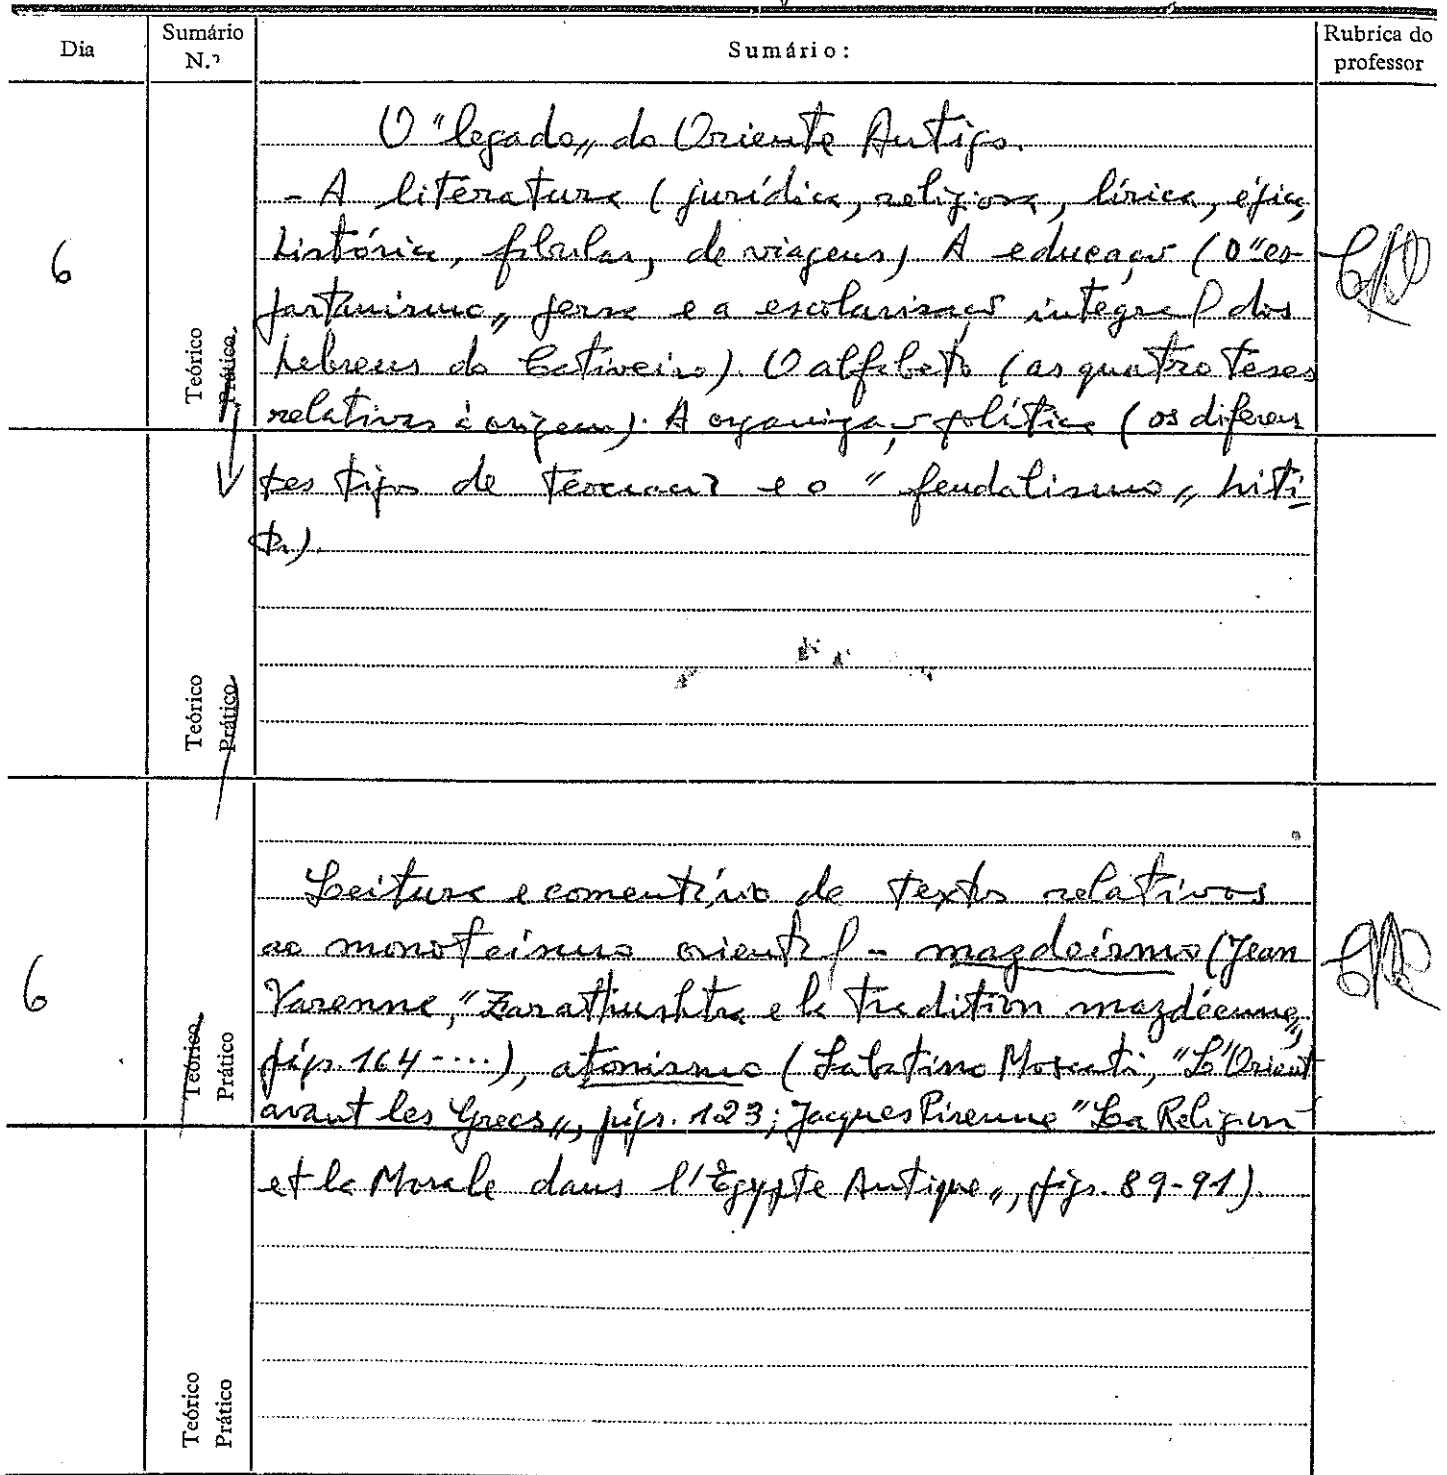 Dia
Sumário N.º
Sumário:
Rubrica do professor
6
Teórico
Prático
O "legado" do Oriente Antigo.
- A literatura (jurídica, religiosa, lírica, épica,
histórica, fábulas, de viagens). A educação (o "es-
partanismo" persa e a escolarização integral dos
hebreus do Cativeiro). O alfabeto (as quatro teses
relativas à origem). A organização política (os diferen
tes tipos de teocracia e o "feudalismo" hiti-
ta).
Teórico
Prático
6
Teórico
Prático
Leitura e comentário de textos relativos
ao monoteísmo oriental - mazdeísmo (Jean
Varenne, "Zarathushtra e la tradition mazdéenne",
págs. 164 ....), atonismo (Sabatino Moscati, "L'Orient
avant les Grecs", págs. 123; Jacques Pirenne "La Religion
et la Morale dans l'Égypte Antique", págs. 89-91).
Teórico
Prático